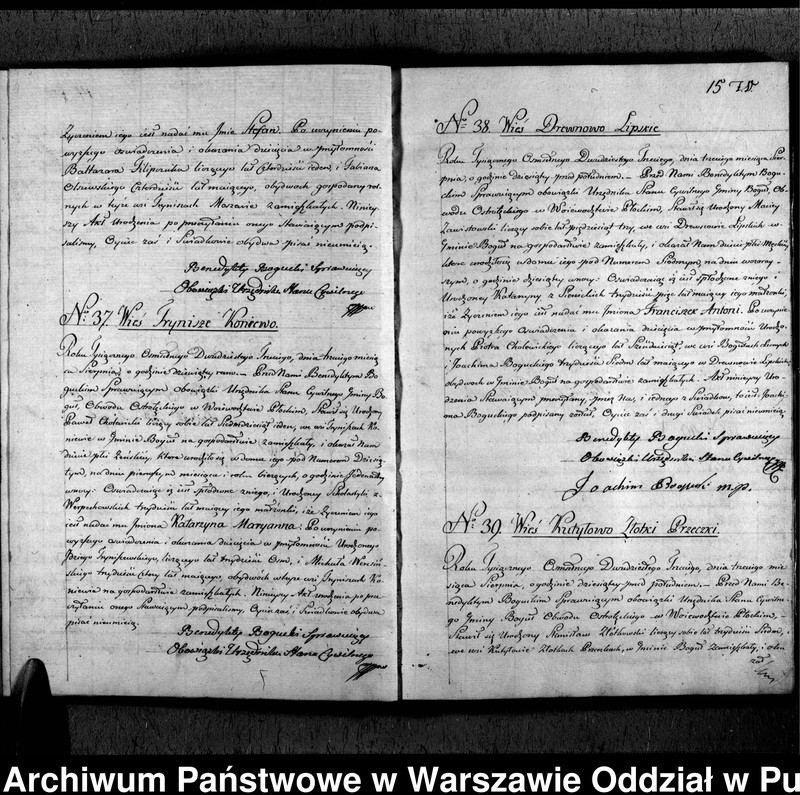 Życzeniem iego iest nadać mu Imie Stefan. Po uczynieniu po-
wyższego oswiadczenia i okazania dziecięcia w przytomności
Baltazara Filipczuka liczącego lat Czterdzieści ieden, i Fabiana
Olszewskiego Czterdzieści lat maiącego, obydwoch gospodarzy rol-
nych w teyże wsi Tryniszach Mozarie zamieszkałych. Niniey-
szy Akt Urodzenia po przeczytaniu onego Stawaiącym podpi-
saliśmy, Oyciec zaś i Swiadkowie obydwa pisać nieumieią.
Benedykty Bogucki Sprawuiący
Obowiązki Urzędnika Stanu Cywilnego
No. 37. Wieś Trynisze Koniewo.
Roku Tysiącznego Ośmsetnego Dwudziestego Trzeciego, dnia trzeciego miesią-
ca Sierpnia, o godzinie dziesiątey rano. Przed Nami Benedyktym Bo-
guckim Sprawuiącym obowiązki Urzędnika Stanu Cywilnego Gminy Bo-
guť, Obwodu Ostrołęckiego w Woiewodztwie Płockim, Stawił się Urodzony
Paweł liczący sobie lat ieden, we wsi Tryniszach Ko-
niewie w Gminie Boguť na gospodarstwie zamieszkały, i okazał Nam
dziecie płci Żeńskiey, które urodziło się w domu iego pod Numerem Dziesią-
tym, na dniu pierwszym miesiąca i roku bieżących, o godzinie Jedenastey
wnocy: Oswiadczaiąc iż iest spłodzone z niego, i Urodzoney Skolastyki z
Wierzchowskich trzydzieści lat maiącey iego małżonki, iże Życzeniem iego
iest nadać mu Imiona Katarzyna Maryanna: Po uczynieniu po-
wyższego oswiadczenia i okazania dziecięcia w przytomności Urodzonego
Tryniszewskiego, liczącego lat trzydzieści Ośm, i Michała
trzydzieści Cztery lat maiącego, obydwoch w teyże wsi Tryniszach Ko-
niewie na gospodarstwie zamieszkałych. Ninieyszy Akt urodzenia po prze-
czytaniu onego Stawaiącym podpisaliśmy, Oyciec zaś i Swiadkowie obydwa
pisać nieumieią.
Benedykty Bogucki Sprawuiący
Obowiązki Urzędnika Stanu Cywilnego
15
No. 38. Wieś Drewnowo Lipskie
Roku Tysiącznego Ośmsetnego Dwudziestego Trzeciego, dnia trzeciego miesiąca Sier-
pnia, o godzinie dziesiątey przed południem. Przed Nami Benedyktym Bogu-
ckim Sprawuiącym obowiązki Urzędnika Stanu Cywilnego Gminy Boguť, Ob-
wodu Ostrołęckiego w Woiewodztwie Płockim, Stawił się Urodzony Maciey
Zawistowski liczący sobie lat piędziesiąt trzy, we wsi Drewnowie Lipskich w
Gminie Boguť na gospodarstwie zamieszkały, i okazał Nam dziecie płci Męskiey
które urodziło się w domu iego pod Numerem Siodmym, na dniu wczoray-
szym, o godzinie dziesiątey wnocy: Oswiadczaiąc iż iest spłodzone z niego i
Urodzoney Katarzyny z Sienickich trzydzieści pięć lat maiącey iego małżonki
iże Życzeniem iego iest nadać mu Imiona Franciszek Antoni. Po uczynie-
niu powyższego oswiadczenia i okazania dziecięcia w przytomności Urodzo-
nych Piotra liczącego lat Sześdziesiąt, we wsi Boguťach
i Joachima Boguckiego trzydzieści Siedm lat maiącego w Drewnowie Lipskich
obydwoch w Gminie Boguť na gospodarstwie zamieszkałych. Akt ninieyszy Uro-
dzenia Stawaiącym przeczytany, przez Nas, i iednego z Swiadkow, to iest Joachi-
ma Boguckiego podpisany został, Oyciec zaś i drugi Swiadek pisać nieumieią
Benedykty Bogucki Sprawuiący
Obowiązki Urzędnika Stanu Cywilnego
Joachim Bogucki m.p.
No. 39. Wieś Kutyłowo Złotki Przeczki.
Roku Tysiącznego Ośmsetnego Dwudziestego Trzeciego, dnia trzeciego mie-
siąca Sierpnia, o godzinie dziesiątey przed południem. Przed Nami Be-
nedyktym Boguckim Sprawuiącym obowiązki Urzędnika Stanu Cywilne-
go Gminy Boguť Obwodu Ostrołęckiego w Woiewodztwie Płockim,
Stawił się Urodzony Stanisław Złotkowski liczący sobie lat trzydzieści Siedm,
we wsi Kutyłowie Złotkach Przeczkach, w Gminie Boguť Zamieszkały, i oka-
zał
Archiwum Państwowe w Warszawie Oddział w Pu